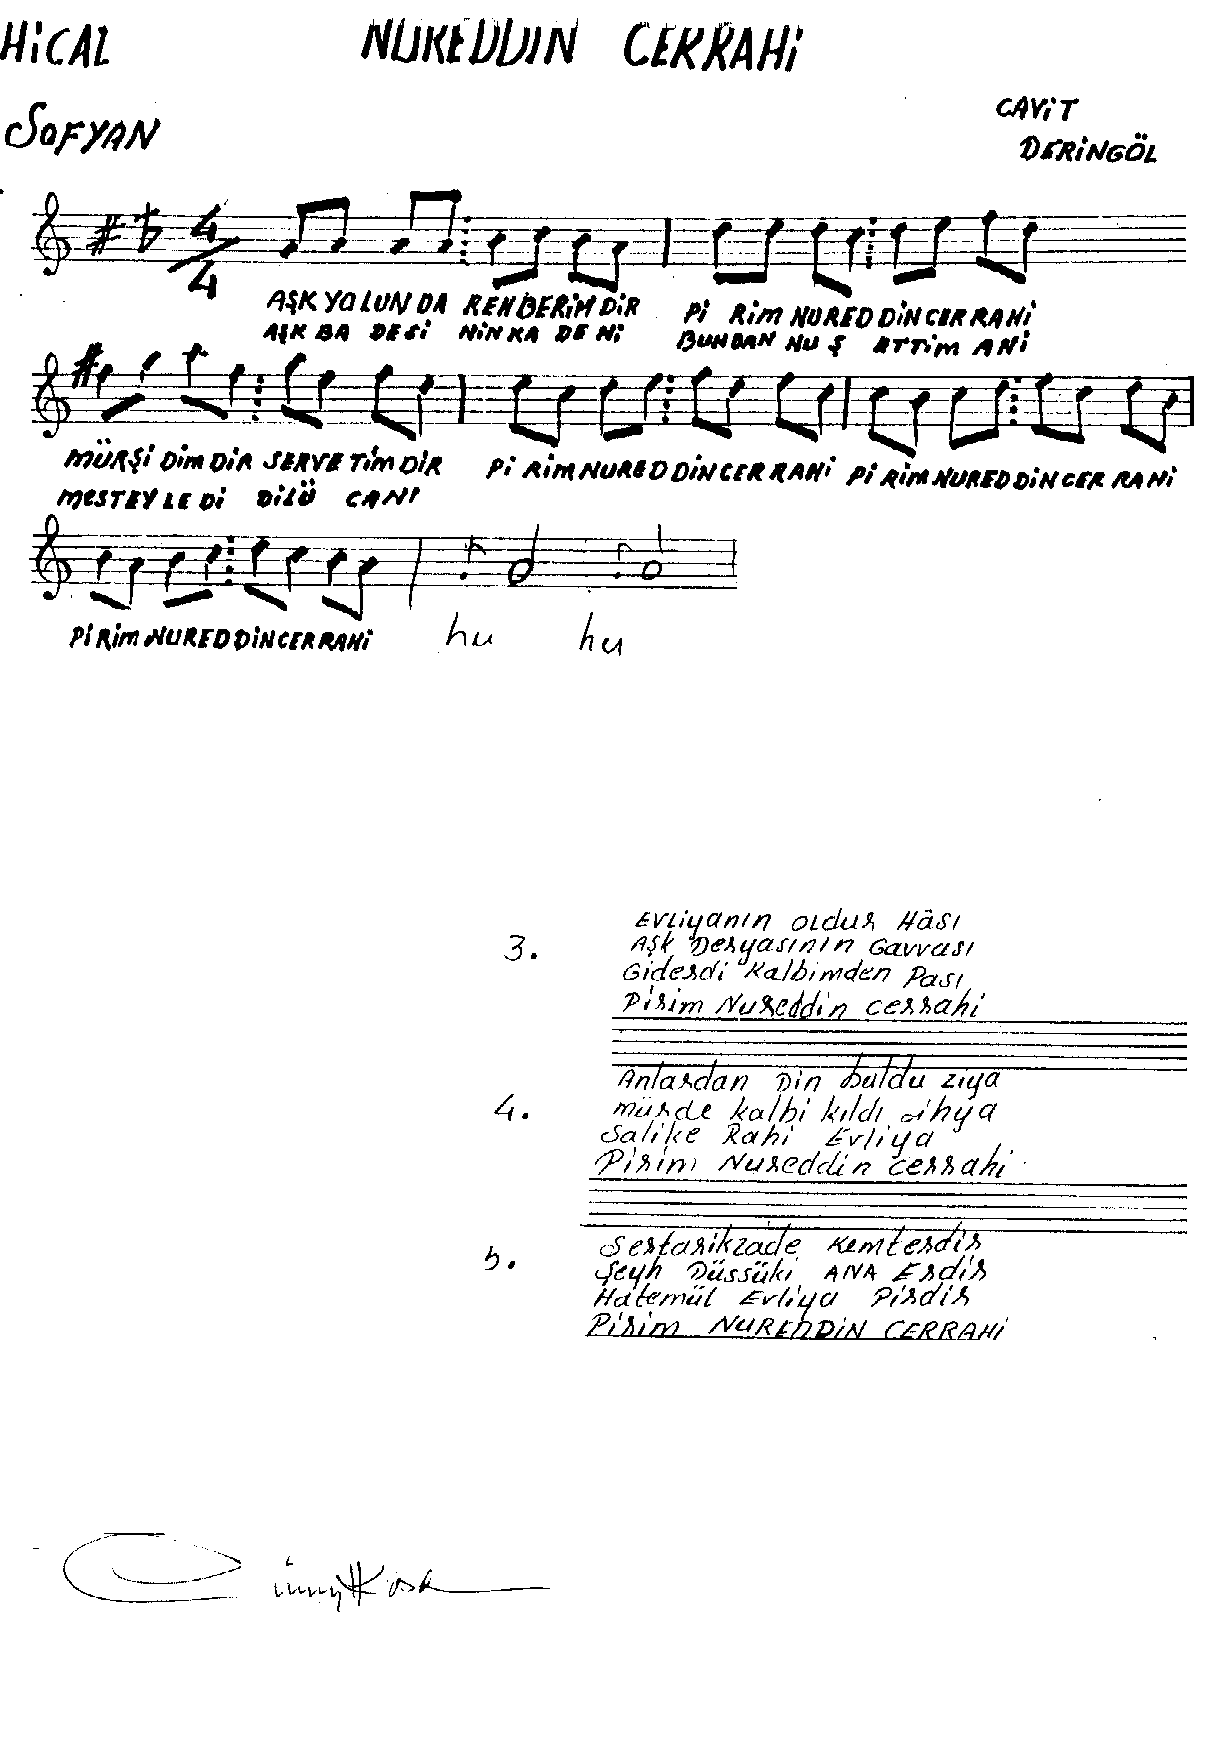 HiCAL NUREDDIN CERRAHi
SOFYAN
CAViT
DERiNGÖL
4/4
AŞK YOLUNDA REHBERİMDİR Pi RiM NURED DiN CER RAHi
AŞK BA DESi NiN KA DE Hi BUNDAN NU Ş ETTiM ANi
MÜRŞi DiM DiR SERVE TiM DiR Pi RiM NURED DiN CER RAHi Pi RiM NURED DiN CER RAHi
MESTEYLE Di DiLÜ CANI
Pi RiM NURED DiN CER RAHi hu hu
3.
Evliyanın oldur Hâsı
Aşk Deryasının Gavvası
Giderdi Kalbimden Pası
Pirim Nureddin cerrahi
4.
Anlardan Din buldu ziya
mürde kalbi kıldı ihya
Salike Rahi Evliya
Pirim Nureddin cerrahi
5.
Sertarikzade Kemterdir
Şeyh Düssüki ANA Erdir
Hatemül Evliya Pirdir
Pirim NUREDDiN CERRAHi